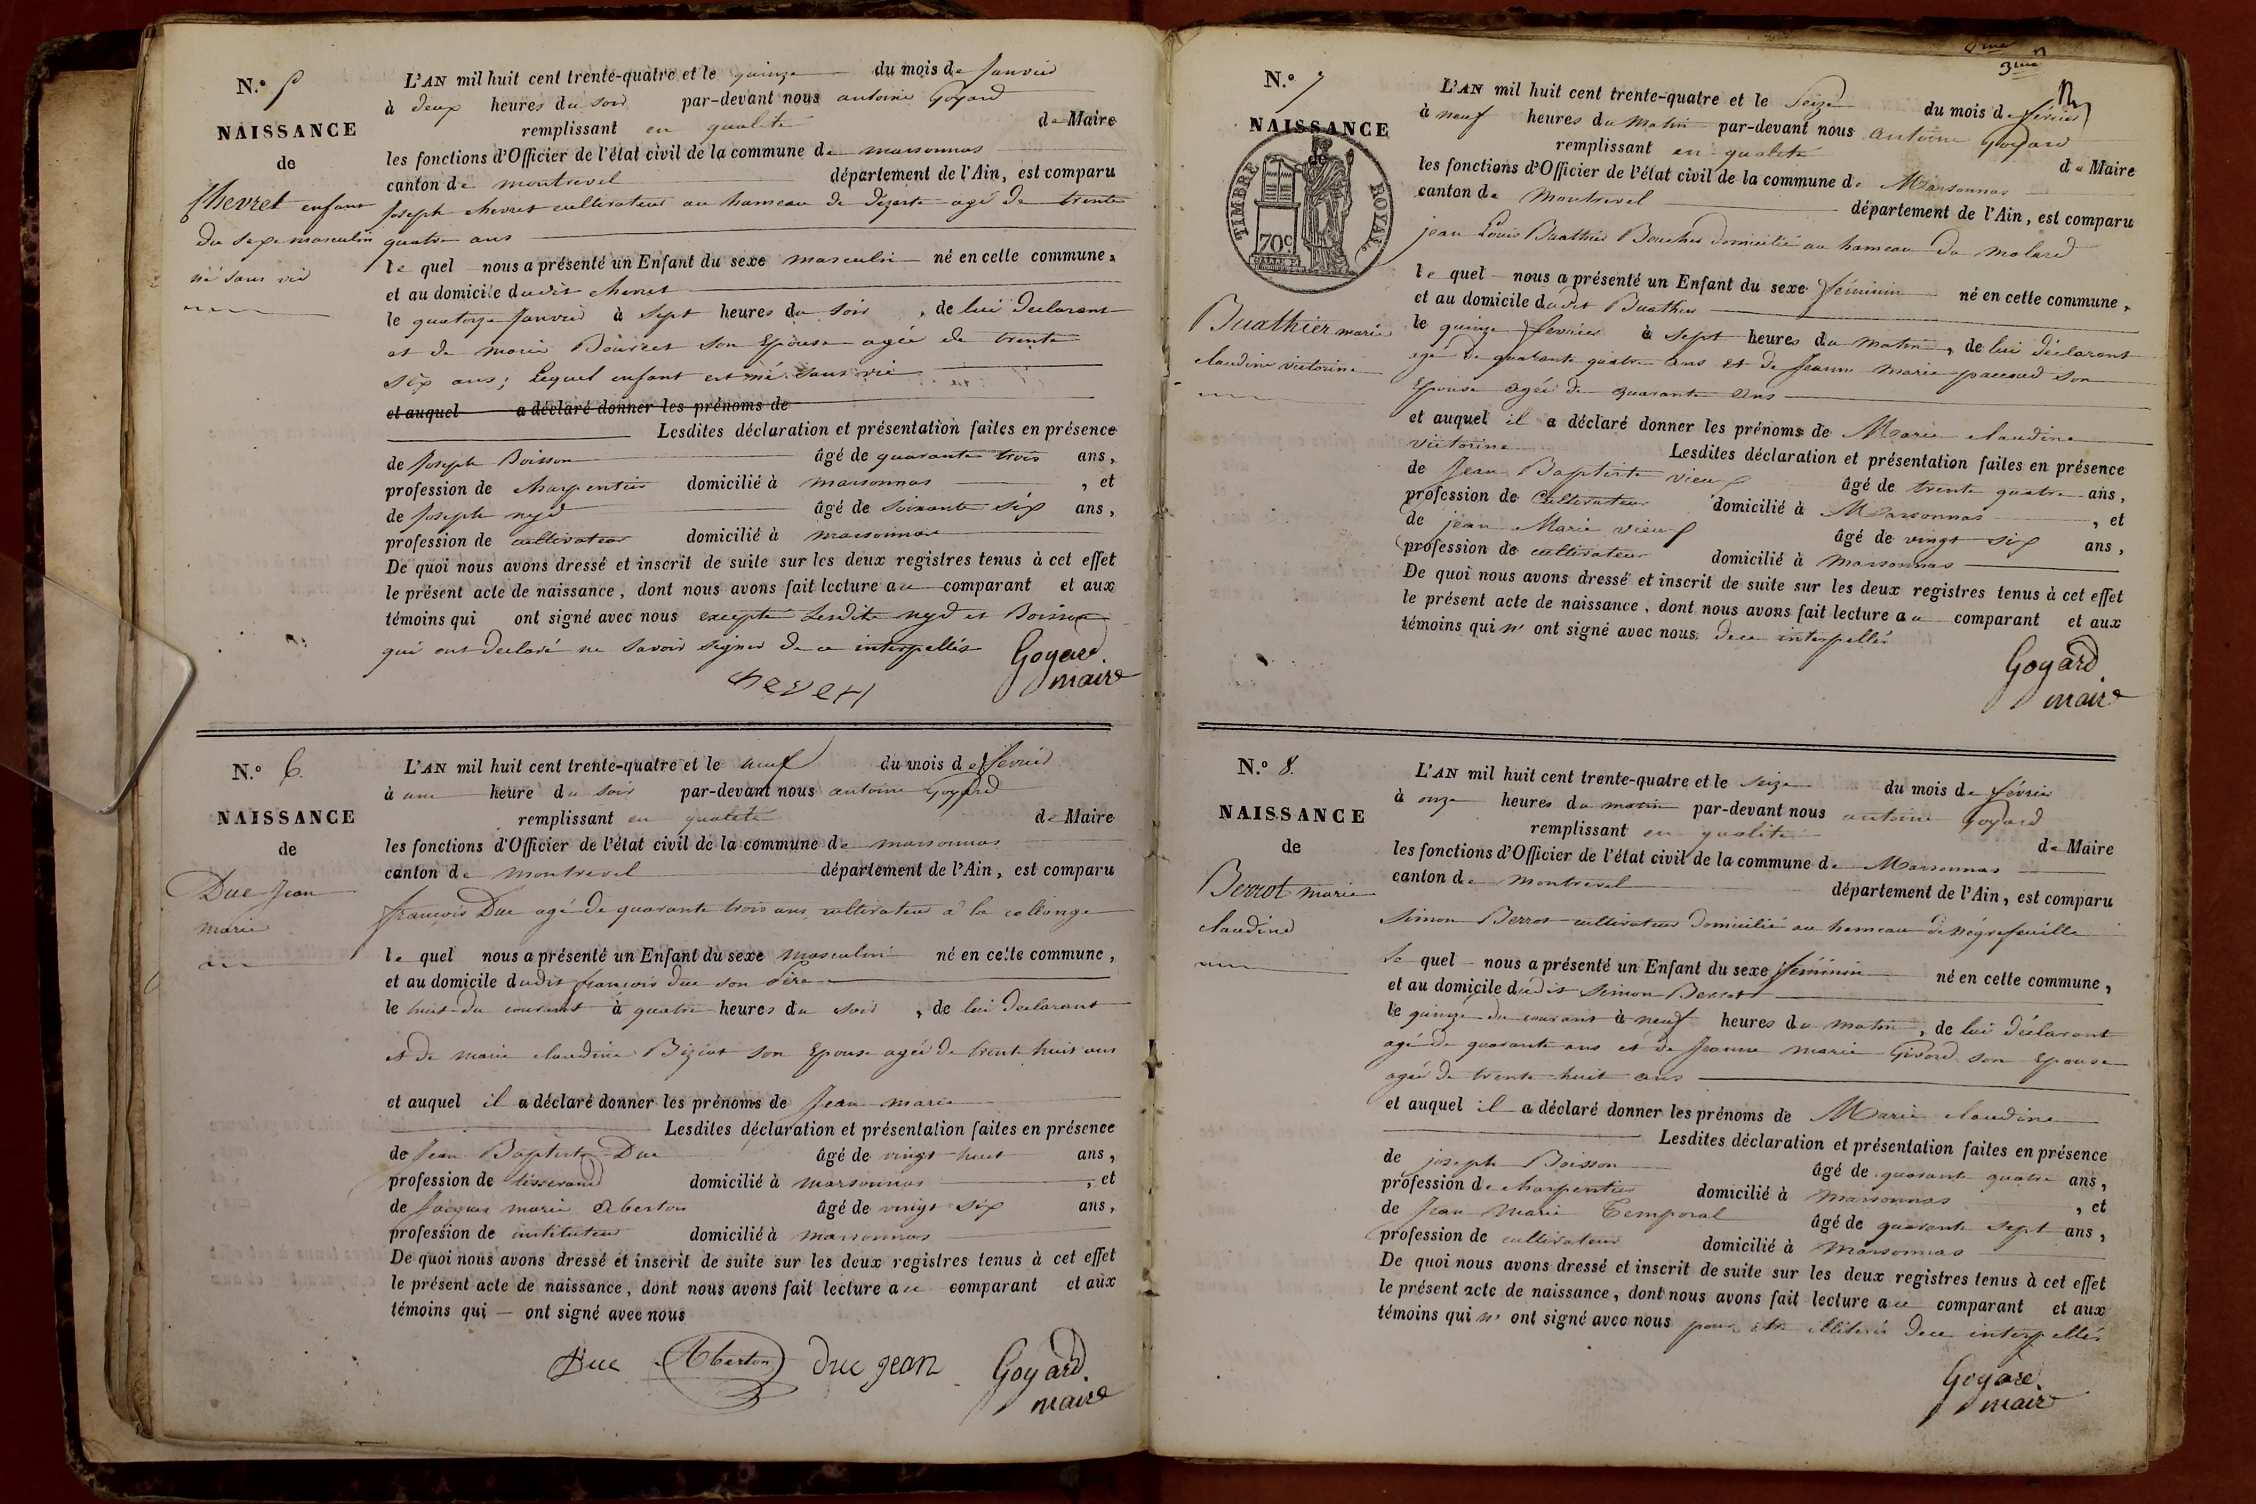 N.º 5
NAISSANCE
de
Chevret enfant
du sexe masculin
né sans vie
L'AN mil huit cent trente-quatre et le quinze du mois de Janvier
à deux heures du soir par-devant nous antoine Goyard
remplissant en qualité de Maire
les fonctions d'Officier de l'état civil de la commune de marsonnas
canton de montrevel département de l'Ain, est comparu
Joseph chevret cultivateur au hameau de agé de trente
quatre ans
le quel nous a présenté un Enfant du sexe masculin né en cette commune,
et au domicile dudit chevret
le quatorze Janvier à sept heures du soir, de lui déclarant
et de marie Bourcet son Epouse agée de trente
six ans; lequel enfant est né sans vie
et auquel a déclaré donner les prénoms de
Lesdites déclaration et présentation faites en présence
de Joseph Boisson âgé de quarante trois ans,
profession de charpentier domicilié à marsonnas, et
de Joseph nyd âgé de soixante six ans,
profession de cultivateur domicilié à marsonnas
De quoi nous avons dressé et inscrit de suite sur les deux registres tenus à cet effet
le présent acte de naissance, dont nous avons fait lecture au comparant et aux
témoins qui ont signé avec nous excepté Lesdits nyd et Boisson
qui ont déclaré ne savoir signer de ce interpellés
Goyard
maire
N.º 6
NAISSANCE
de
Duc Jean
marie
L'AN mil huit cent trente-quatre et le neuf du mois de février
à une heure du soir par-devant nous antoine Goyard
remplissant en qualité de Maire
les fonctions d'Officier de l'état civil de la commune de marsonnas
canton de montrevel département de l'Ain, est comparu
françois Duc agé de quarante trois ans cultivateur à la collonge
le quel nous a présenté un Enfant du sexe masculin né en cette commune,
et au domicile dudit françois duc son Père
le huit du courant à quatre heures du soir, de lui déclarant
et de marie claudine Biziat son Epouse agée de trente huit ans
et auquel il a déclaré donner les prénoms de Jean marie
Lesdites déclaration et présentation faites en présence
de Jean Baptiste Duc âgé de vingt huit ans,
profession de tisserand domicilié à marsonnas, et
de Jacques marie Aberton âgé de vingt six ans,
profession de instituteur domicilié à marsonnas
De quoi nous avons dressé et inscrit de suite sur les deux registres tenus à cet effet
le présent acte de naissance, dont nous avons fait lecture au comparant et aux
témoins qui — ont signé avec nous
Duc Aberton Duc Jean Goyard
maire
3me
N.º 7
NAISSANCE
de
TIMBRE ROYAL
70c
Buathier marie
claudine victorine
L'AN mil huit cent trente-quatre et le seize du mois de février
à neuf heures du matin par-devant nous antoine Goyard
remplissant en qualité de Maire
les fonctions d'Officier de l'état civil de la commune de Marsonnas
canton de montrevel département de l'Ain, est comparu
jean Louis Buathier Boucher domicilié au hameau du molard
le quel nous a présenté un Enfant du sexe féminin né en cette commune,
et au domicile dudit Buathier
le quinze février à sept heures du matin, de lui déclarant
agé de quarante quatre ans et de Jeanne marie paccoud son
Epouse agée de quarante ans
et auquel il a déclaré donner les prénoms de Marie claudine
victorine Lesdites déclaration et présentation faites en présence
de Jean Baptiste vieux âgé de trente quatre ans,
profession de cultivateur domicilié à Marsonnas, et
de jean Marie vieux âgé de vingt six ans,
profession de cultivateur domicilié à marsonnas
De quoi nous avons dressé et inscrit de suite sur les deux registres tenus à cet effet
le présent acte de naissance, dont nous avons fait lecture au comparant et aux
témoins qui n' ont signé avec nous, de ce interpellés
Goyard
maire
N.º 8.
NAISSANCE
de
Berrot marie
claudine
L'AN mil huit cent trente-quatre et le seize du mois de février
à onze heures du matin par-devant nous antoine Goyard
remplissant en qualité de Maire
les fonctions d'Officier de l'état civil de la commune de Marsonnas
canton de montrevel département de l'Ain, est comparu
simon Berrot cultivateur domicilié au hameau de négrefeuille
le quel nous a présenté un Enfant du sexe féminin né en cette commune,
et au domicile dudit simon Berrot
le quinze du courant à neuf heures du matin, de lui déclarant
agé de quarante ans et de Jeanne marie Givord son Epouse
agée de trente huit ans
et auquel il a déclaré donner les prénoms de Marie claudine
Lesdites déclaration et présentation faites en présence
de joseph Boisson âgé de quarante quatre ans,
profession de charpentier domicilié à marsonnas, et
de Jean Marie Temporal âgé de quarante sept ans,
profession de cultivateur domicilié à marsonnas
De quoi nous avons dressé et inscrit de suite sur les deux registres tenus à cet effet
le présent acte de naissance, dont nous avons fait lecture au comparant et aux
témoins qui n' ont signé avec nous pour être illitérés de ce interpellés
Goyard
maire